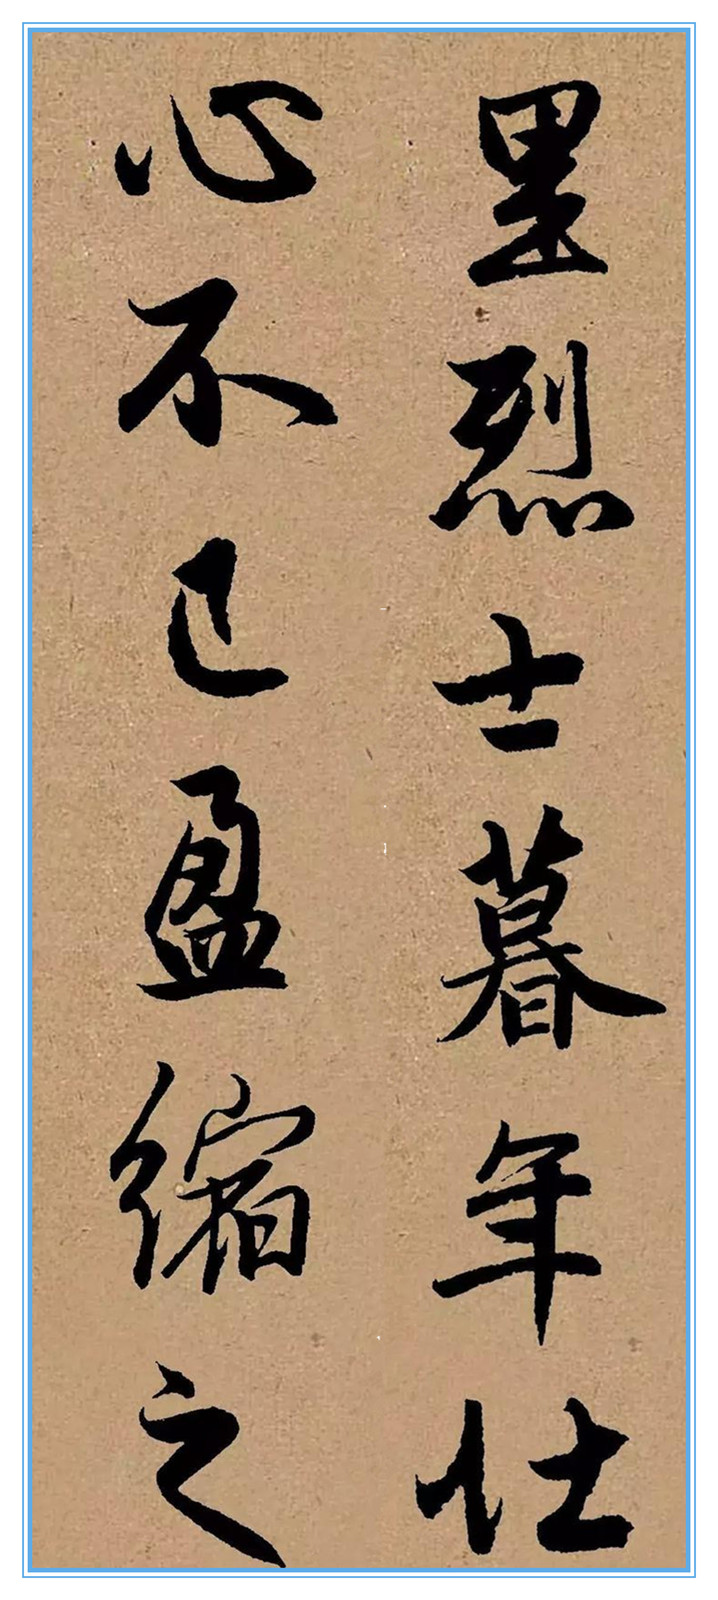 里烈士暮年仕
心不已盈縮之